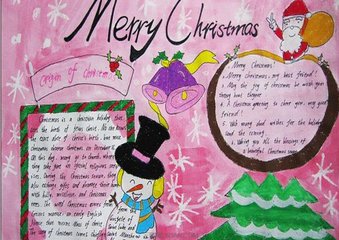 Merry Christmas
Origin of Christmas
Christmas is a christian holiday that
the birth of Jesus Christ. No one knows
the exact date of christ's birth, but most
Christmas Christmas on December 25.
On this day, many go to church, where
they take part in special religious
During the Christmas season, they
also exchange gifts and decorate their homes
with holly, mistletoe, and Christmas
trees. The word Christmas comes from
Cristes maesse, an early English
phrase that means mass of Christ.
The story of Christmas comes
from the
Gospels of
Saint Luke and
Saint Matthew in
Merry Christmas!
Merry Christmas, my best friend!
May the joy of Christmas be with you
A Christmas greeting to cheer you, my good
friend!
With many good wishes for the holiday
and the coming
Wishing you all the blessings of
a beautiful Christmas season